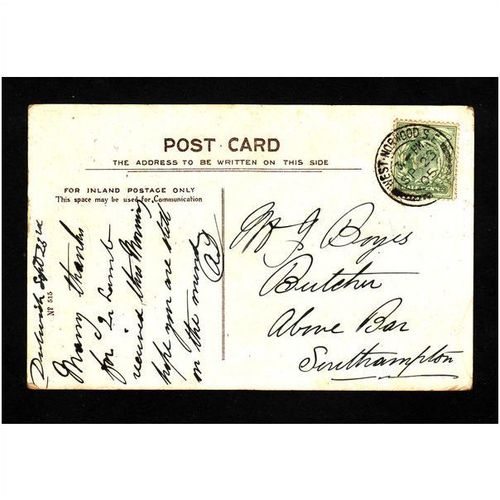 POST CARD
THE ADDRESS TO BE WRITTEN ON THIS SIDE
FOR INLAND POSTAGE ONLY
This space may be used for Communication
WEST NORWOOD S.E
PM
23
05
Dulwich Sept 23rd
Many thanks
for
received this Morning
hope you are still
on the mend
Nº 515
Mr J Boyes
Butcher
Above Bar
Southampton